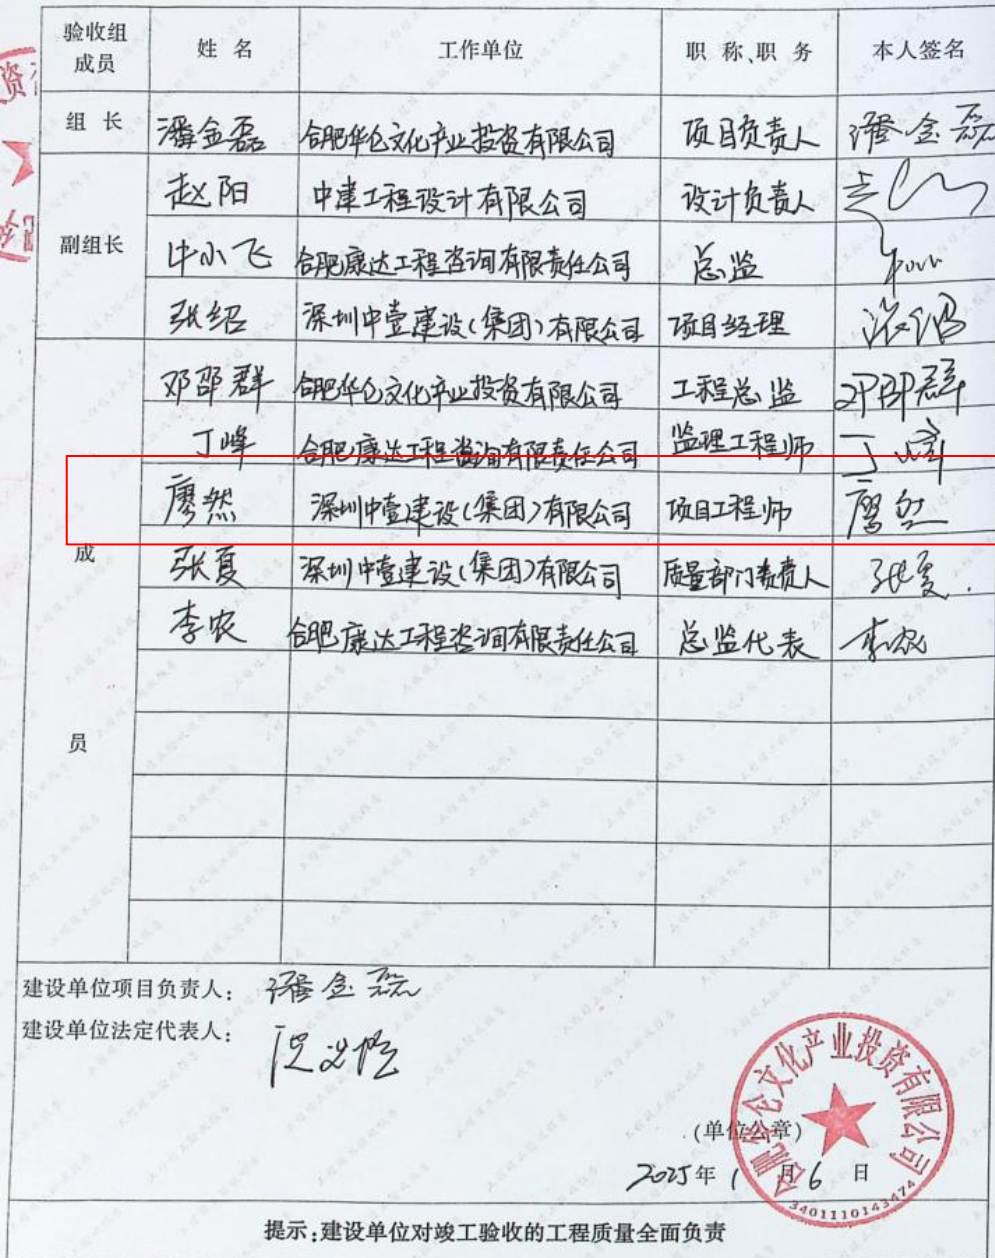 验收组成员 姓 名 工作单位 职 称、职 务 本人签名
组 长 潘金磊 合肥华仑文化产业投资有限公司 项目负责人 潘金磊
副组长
赵阳 中建工程设计有限公司 设计负责人
小飞 合肥康达工程咨询有限责任公司 总监
张绍 深圳中壹建设(集团)有限公司 项目经理 张绍
成员
邓邵群 合肥华仑文化产业投资有限公司 工程总监 邓邵群
丁峰 合肥康达工程咨询有限责任公司 监理工程师 丁峰
廖然 深圳中壹建设(集团)有限公司 项目工程师 廖然
张夏 深圳中壹建设(集团)有限公司 质量部门负责人 张夏
李农 合肥康达工程咨询有限责任公司 总监代表 李农
建设单位项目负责人: 潘金磊
建设单位法定代表人:
合肥华仑文化产业投资有限公司
(单位公章)
2025年1月6日
3401110143474
提示:建设单位对竣工验收的工程质量全面负责